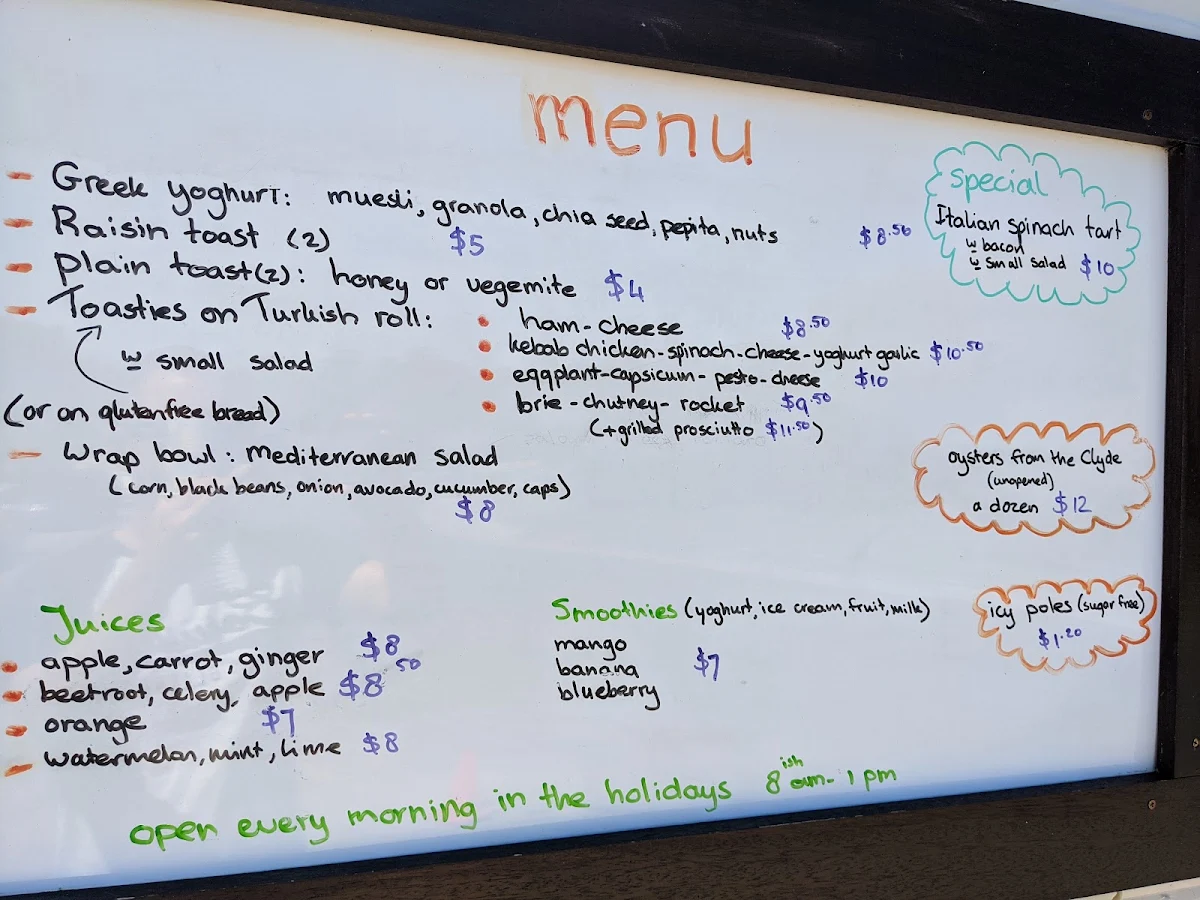 menu
- Greek yoghurt: muesli, granola, chia seed, pepita, nuts $8.50
- Raisin toast (2) $5
- plain toast(2): honey or vegemite $4
- Toasties on Turkish roll:
w small salad
(or on glutenfree bread)
• ham-cheese $8.50
• kebab chicken-spinach-cheese-yoghurt garlic $10.50
• eggplant-capsicum-pesto-cheese $10
• brie-chutney-rocket $9.50
(+grilled prosciutto $11.50)
- Wrap bowl: mediterranean salad
(corn, black beans, onion, avocado, cucumber, caps)
$8
Special
Italian spinach tart
w bacon
w small salad $10
oysters from the Clyde
(unopened)
a dozen $12
icy poles (sugar free)
$1.20
Juices
• apple, carrot, ginger $8
• beetroot, celery, apple $8.50
• orange $7
- watermelon, mint, lime $8
Smoothies (yoghurt, ice cream, fruit, milk)
mango
banana $7
blueberry
open every morning in the holidays 8ish am-1pm